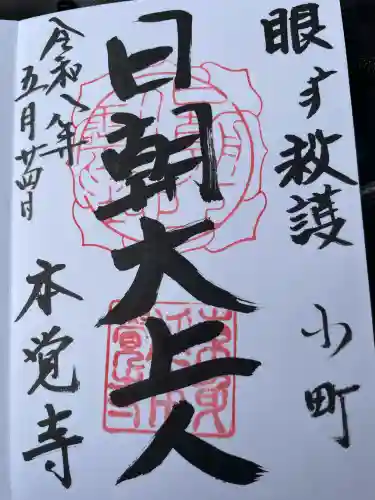 眼疾救護
小町
日朝大上人
令和八年
五月廿四日
本覚寺